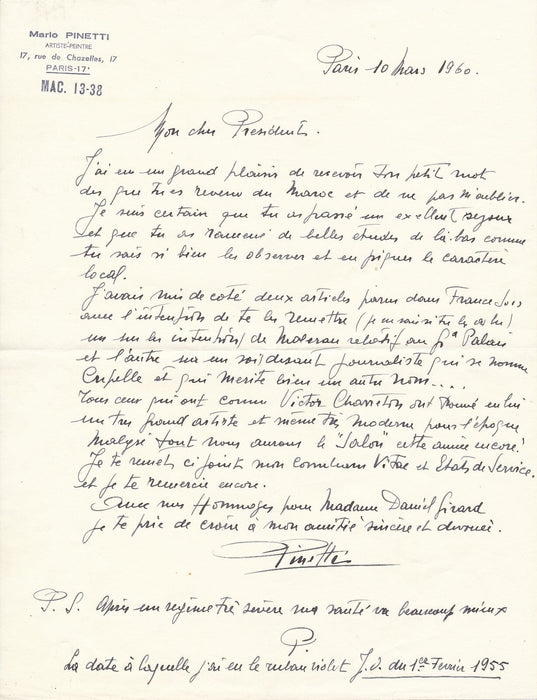 Mario PINETTI
ARTISTE-PEINTRE
17, rue de Chazelles, 17
PARIS-17ᵉ
MAC. 13-38
Paris 10 Mars 1960.
Mon cher Président.
J'ai eu un grand plaisir de recevoir ton petit mot
des que tu es revenu du Maroc et de ne pas m'oublier.
Je suis certain que tu as passé un excellent sejour
et que tu as ramené de belles études de là-bas comme
tu sais si bien les observer et en piquer le caractère
local.
J'avais mis de coté deux articles parus dans France Soir
avec l'intention de te les remettre (je ne sais si tu les as lu)
un sur les intentions de Malraux relatif au Gᵈ Palais
et l'autre sur un soi disant journaliste qui se nomme
Crespelle et qui merite bien un autre nom....
Tous ceux qui ont connu Victor Charreton ont trouvé en lui
un tres grand artiste et même très moderne pour l'époque
Malgré tout nous aurons le "Salon" cette année encore!
Je te remets ci joint mon Curriculum Vitae et Etats de Service.
et je te remercie encore.
Avec mes Hommages pour Madame Daniel Girard
je te prie de croire à mon amitié sincère et devouée.
Pinetti
P.S. Après un regime très sevère ma santé va beaucoup mieux
P.
La date à laquelle j'ai eu le ruban violet J.O. du 1er Fevrier 1955